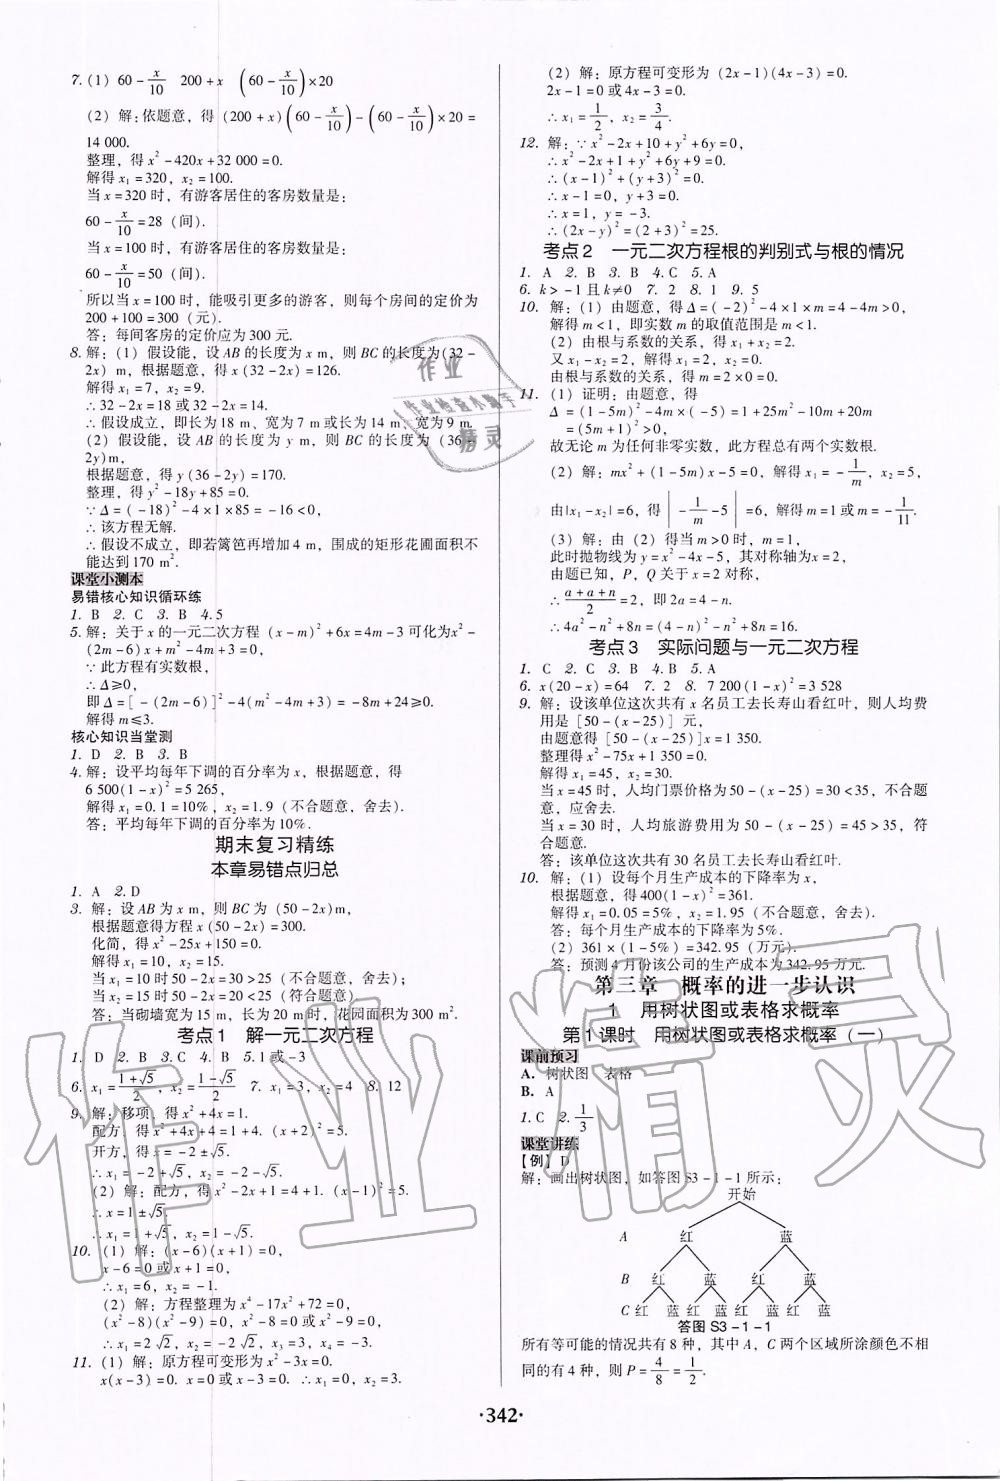 7. (1) 60 - x/10  200 + x  (60 - x/10)×20
(2) 解:依题意,得 (200+x)(60 - x/10) - (60 - x/10)×20 =
14 000.
整理,得 x²-420x+32 000=0.
解得 x₁=320, x₂=100.
当 x=320 时,有游客居住的客房数量是:
60 - x/10 = 28 (间).
当 x=100 时,有游客居住的客房数量是:
60 - x/10 = 50 (间).
所以当 x=100 时,能吸引更多的游客,则每个房间的定价为
200+100=300 (元).
答:每间客房的定价应为 300 元.
8. 解:(1) 假设能,设 AB 的长度为 x m,则 BC 的长度为(32-
2x) m,根据题意,得 x(32-2x)=126.
解得 x₁=7, x₂=9.
∴32-2x=18 或 32-2x=14.
∴假设成立,即长为 18 m、宽为 7 m 或长为 14 m、宽为 9 m.
(2) 假设能,设 AB 的长度为 y m,则 BC 的长度为 (36-
2y)m,
根据题意,得 y(36-2y)=170.
整理,得 y²-18y+85=0.
∵Δ=(-18)²-4×1×85=-16<0,
∴该方程无解.
∴假设不成立,即若篱笆再增加 4 m,围成的矩形花圃面积不
能达到 170 m².
课堂小测本
易错核心知识循环练
1. B 2. C 3. B 4. 5
5. 解:关于 x 的一元二次方程 (x-m)²+6x=4m-3 可化为x²-
(2m-6)x+m²-4m+3=0,
∵此方程有实数根,
∴Δ≥0,
即Δ=[-(2m-6)]²-4(m²-4m+3)=-8m+24≥0.
解得 m≤3.
核心知识当堂测
1. D 2. B 3. B
4. 解:设平均每年下调的百分率为 x,根据题意,得
6 500(1-x)²=5 265,
解得 x₁=0.1=10%, x₂=1.9 (不合题意,舍去).
答:平均每年下调的百分率为 10%.
期末复习精练
本章易错点归总
1. A 2. D
3. 解:设 AB 为 x m,则 BC 为 (50-2x)m,
根据题意得方程 x(50-2x)=300.
化简,得 x²-25x+150=0.
解得 x₁=10, x₂=15.
当 x₁=10 时 50-2x=30>25 (不合题意,舍去);
当 x₂=15 时 50-2x=20<25 (符合题意).
答:当砌墙宽为 15 m,长为 20 m 时,花园面积为 300 m².
考点1 解一元二次方程
1. D 2. B 3. C 4. B 5. 1 或 -3
6. x₁=(1+√5)/2, x₂=(1-√5)/2 7. x₁=3, x₂=4 8. 12
9. 解:移项,得 x²+4x=1.
配方,得 x²+4x+4=1+4. (x+2)²=5.
开方,得 x=-2±√5.
∴x₁=-2+√5, x₂=-2-√5.
(2) 解:配方,得 x²-2x+1=4+1. (x-1)²=5.
∴x=1±√5.
∴x₁=1+√5, x₂=1-√5.
10. (1) 解:(x-6)(x+1)=0,
x-6=0 或 x+1=0,
∴x₁=6, x₂=-1.
(2) 解:方程整理为 x⁴-17x²+72=0,
(x²-8)(x²-9)=0, x²-8=0 或 x²-9=0,
∴x₁=2√2, x₂=-2√2, x₃=3, x₄=-3.
11. (1) 解:原方程可变形为 x²-3x=0.
x(x-3)=0. x=0 或 x-3=0. ∴x₁=0, x₂=3.
(2) 解:原方程可变形为 (2x-1)(4x-3)=0.
2x-1=0 或 4x-3=0.
∴x₁=1/2, x₂=3/4.
12. 解:∵x²-2x+10+y²+6y=0,
∴x²-2x+1+y²+6y+9=0.
∴(x-1)²+(y+3)²=0.
∴x-1=0, y+3=0.
∴x=1, y=-3.
∴(2x-y)²=(2+3)²=25.
考点2 一元二次方程根的判别式与根的情况
1. A 2. B 3. B 4. C 5. A
6. k>-1 且 k≠0 7. 2 8. 1 9. 5
10. 解:(1) 由题意,得Δ=(-2)²-4×1×m=4-4m>0,
解得 m<1,即实数 m 的取值范围是 m<1.
(2) 由根与系数的关系,得 x₁+x₂=2.
又 x₁-x₂=2,解得 x₁=2, x₂=0.
由根与系数的关系,得 m=2×0=0.
11. (1) 证明:由题意,得
Δ=(1-5m)²-4m×(-5)=1+25m²-10m+20m
=(5m+1)²>0;
故无论 m 为任何非零实数,此方程总有两个实数根.
(2) 解:mx²+(1-5m)x-5=0,解得 x₁=-1/m, x₂=5,
由|x₁-x₂|=6,得 |-1/m-5|=6,解得 m=1 或 m=-1/11.
(3) 解:由 (2) 得当 m>0 时,m=1,
此时抛物线为 y=x²-4x-5,其对称轴为x=2.
由题已知,P, Q 关于 x=2 对称,
∴(a+a+n)/2=2,即 2a=4-n.
∴4a²-n²+8n=(4-n)²-n²+8n=16.
考点3 实际问题与一元二次方程
1. C 2. C 3. B 4. B 5. A
6. x(20-x)=64 7. 2 8. 7 200(1-x)²=3 528
9. 解:设该单位这次共有 x 名员工去长寿山看红叶,则人均费
用是 [50-(x-25)] 元,
由题意得 [50-(x-25)]x=1 350.
整理得 x²-75x+1 350=0.
解得 x₁=45, x₂=30.
当 x=45 时,人均门票价格为 50-(x-25)=30<35,不合题
意,应舍去.
当 x=30 时,人均旅游费用为 50-(x-25)=45>35,符
合题意.
答:该单位这次共有 30 名员工去长寿山看红叶.
10. 解:(1) 设每个月生产成本的下降率为 x,
根据题意,得 400(1-x)²=361.
解得 x₁=0.05=5%, x₂=1.95 (不合题意,舍去).
答:每个月生产成本的下降率为 5%.
(2) 361×(1-5%)=342.95 (万元).
答:预测 4 月份该公司的生产成本为 342.95 万元.
第三章 概率的进一步认识
1 用树状图或表格求概率
第1课时 用树状图或表格求概率(一)
课前预习
A. 树状图 表格
B. A
1. C 2. 1/3
课堂讲练
【例】D
解:画出树状图,如答图 S3-1-1 所示:
开始
A 红 蓝
B 红 蓝 红 蓝
C 红 蓝 红 蓝 红 蓝 红 蓝
答图 S3-1-1
所有等可能的情况共有 8 种,其中 A, C 两个区域所涂颜色不相
同的有 4 种,则 P=4/8=1/2.
·342·
作业
作业检查小助手
精灵
作业精灵